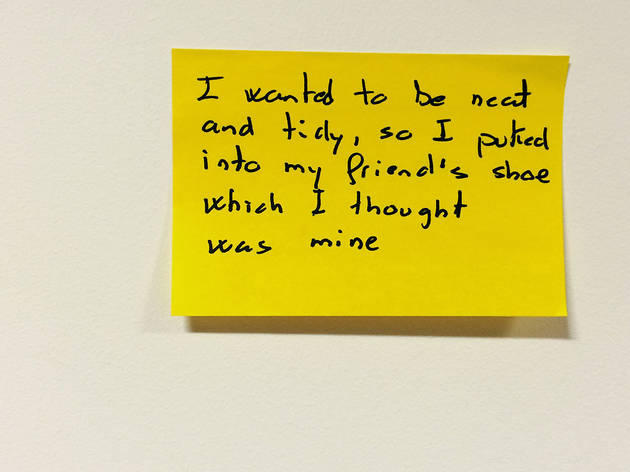 I wanted to be neat
and tidy, so I puked
into my friend's shoe
which I thought
was mine